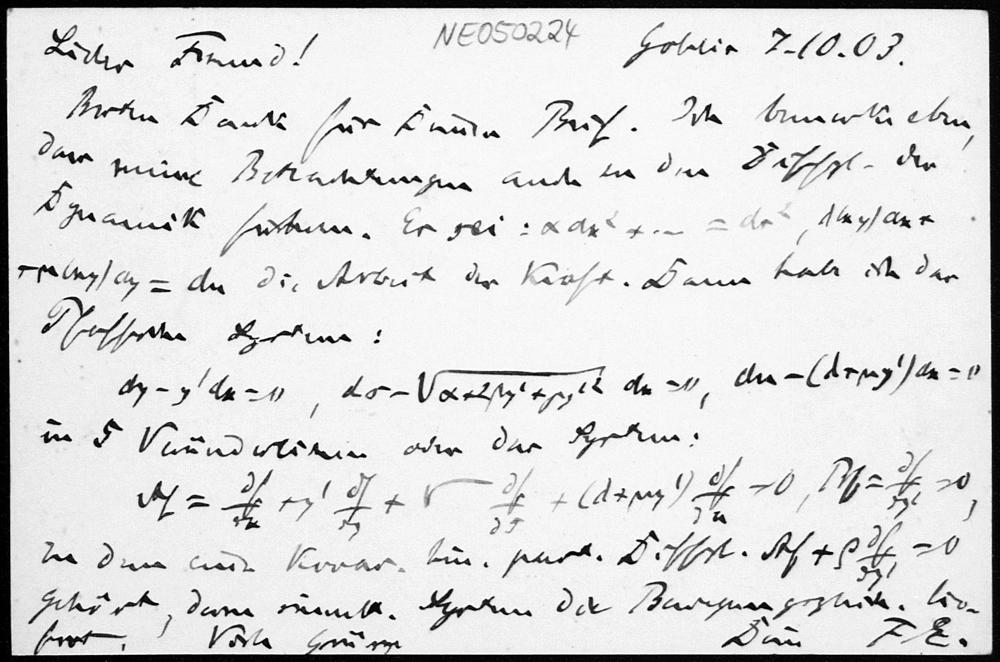 NE050224
Lieber Freund! Gohlis 7.10.03.
Besten Dank für Deinen Brief. Ich bemerke eben,
dass meine Betrachtungen auch zu den Diffgl. der
Dynamik führen. Es sei: αdx² + ... = dσ², λ(xy)dx +
+μ(xy)dy = du die Arbeit der Kraft. Dann habe ich das
Pfaffsche System:
dy - y'dx = 0, dσ - √α+2βy'+γy'² dx = 0, du - (λ+μy')dx = 0
in 5 Veränderlichen oder das System:
Af = ∂f/∂x + y' ∂f/∂y + √ ∂f/∂σ + (λ+μy') ∂f/∂u = 0, Bf = ∂f/∂y' = 0,
zu dem eine lin. part. Diffgl. Af + ρ ∂f/∂y' = 0
gehört, deren System die Bewegungsgleich. lie-
fert. Viele Grüsse Dein F. E.